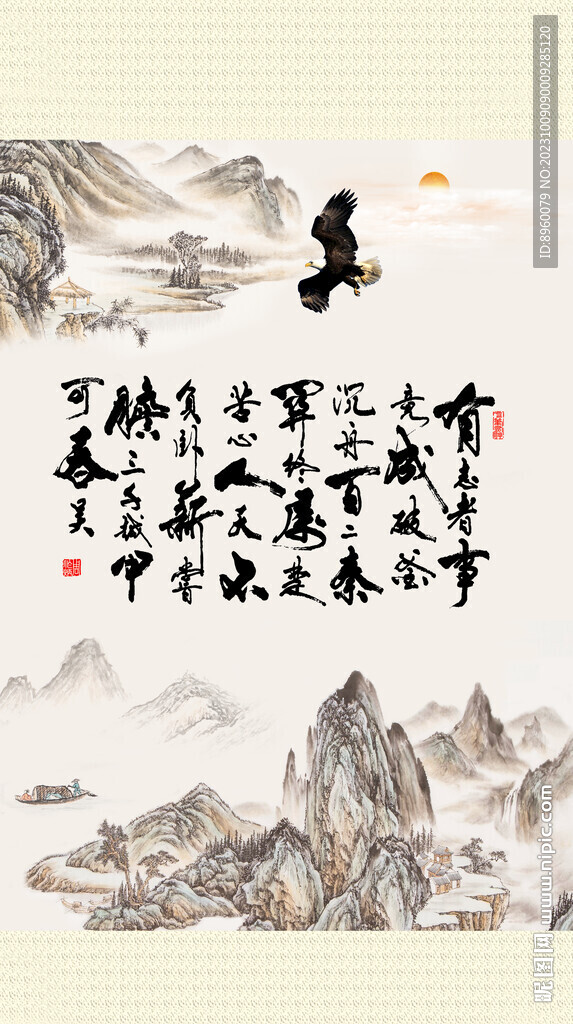 有志者事
竟成破釜
沉舟百二秦
關终属楚
苦心人天不
負卧薪嘗
膽三千越甲
可吞吴
ID:8960079 NO:20231009090009285120
昵图网 www.nipic.com